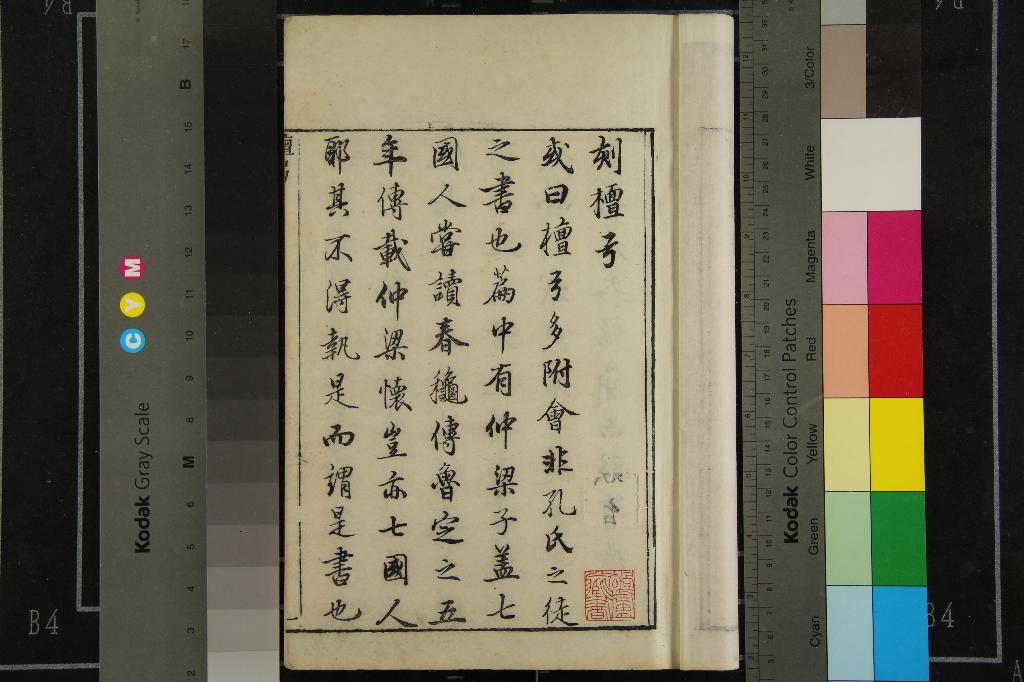 刻檀弓
或曰檀弓多附會非孔氏之徒
之書也篇中有仲梁子蓋七
國人嘗讀春穐傳魯定之五
年傳載仲梁懷豈亦七國人
耶其不得執是而謂是書也
檀弓
Kodak Gray Scale
C Y M
Kodak Color Control Patches
Cyan
Green
Yellow
Red
Magenta
White
3/Color
B4
B4